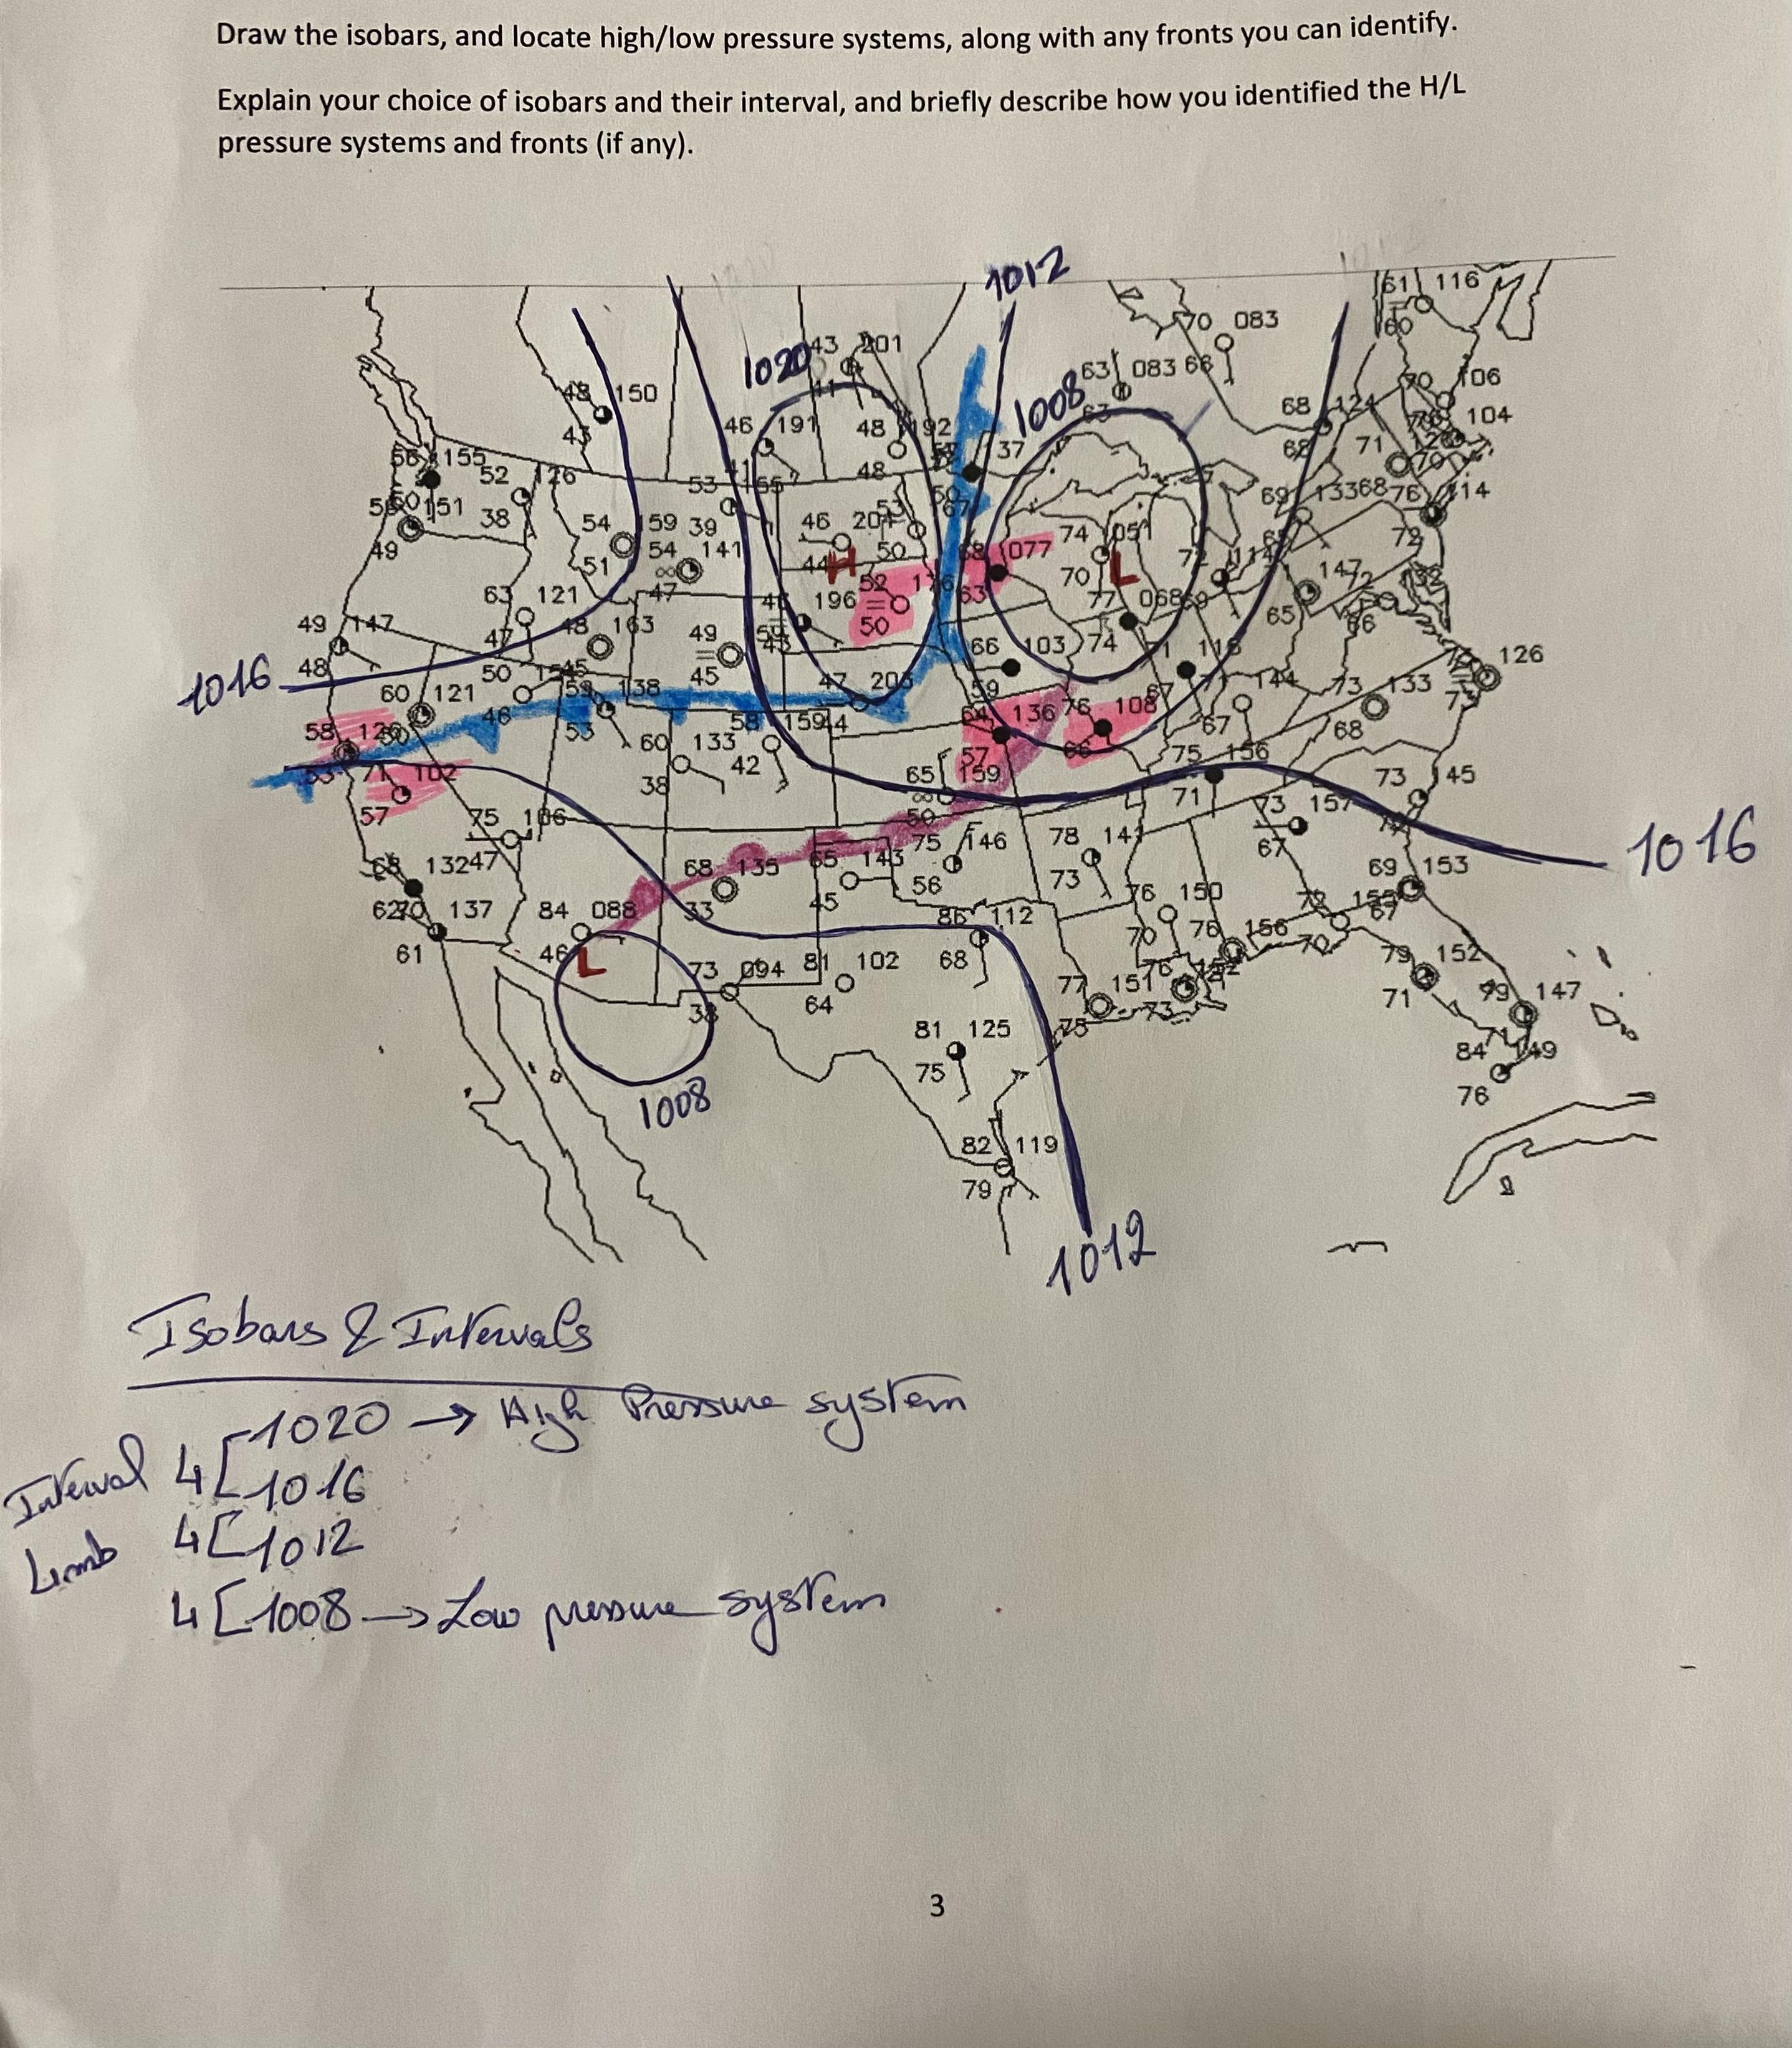 Draw the isobars, and locate high/low pressure systems, along with any fronts you can identify.
Explain your choice of isobars and their interval, and briefly describe how you identified the H/L
pressure systems and fronts (if any).
1012
61 116
60
70 083
66
43 201
1020
63 083
63
1008
43 150
43
46 191
48 192
48
68 124
68
70 106
104
71
56 155
52 126
38
53 155
39
37
151
49
54 159
51
54 141
47
46 201
44
H
50
52 176
50
68 077
63
74 051
70
L
72 114
69 133
68
76 114
72
147
65
63 121
47
49 147
48
48 163
45
49 159
45
196
77 068
74
66 103
59
116
67
144
67
73 133
68
126
1016
60 121
50
46
138
53
47 203
44
58 126
53
71 102
57
60 133
38
58 159
42
64 136
57
76 108
66
65 159
50
75 156
71
73 145
73 157
67
75 106
47
68 132
62
70 137
61
84 088
46
L
68 135
33
65 143
45
75 146
56
78 141
73
76 150
70
76 156
69 153
67
70
1016
86 112
68
73 094
38
81 102
64
77 151
75
76
73
79 152
71
79 147
71
84 149
76
81 125
75
1008
82 119
79
1012
Isobars & Intervals
1020 → High Pressure system
Interval 4 [ 1016
4mb 4 [ 1012
4 [ 1008 → Low pressure system
3